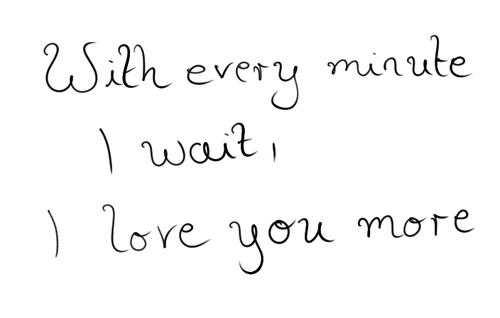 With every minute
I wait,
I love you more